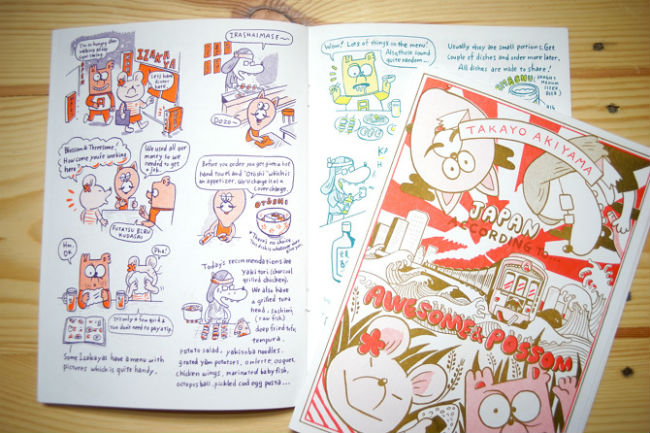 I'm so hungry after
walking whole
IZAKA
YA
Let's have
dinner
here.
IRASHAIMASE~
DOZO~
Blossom & Threesome!
How come you're working
here
We used all our
money so we
needed to get
a job.
FUTATSU BIRU
KUDASAI
Before you order you get gonna hot
hand towel and "Otoshi" which is
an appetizer. We charge it as a
cover charge.
OTOSHI
There's no choice
Hm..
OK
Pha!
It's only a few quid &
you don't need to pay a tip.
Some Izakayas have a menu with
pictures which is quite handy.
Today's recommendations are
Yakitori (charcoal
grilled chicken).
We also have
a grilled tuna
head, sashimi,
(raw fish)
deep fried tofu,
tempura,
potato salad, yakisoba noodles,
grated yam potatoes, omlette, ooques,
chicken wings, marinated baby fish,
octopus ball, pickled cod egg pasta...
Wow! Lots of things on the menu!
Also, those sound
quite random...
Usually they are small portions. Get
couple of dishes and order more later.
All dishes are made to share!
TAKAYO AKIYAMA
JAPAN
ACCORDING TO...
AWESOME & POSSOM